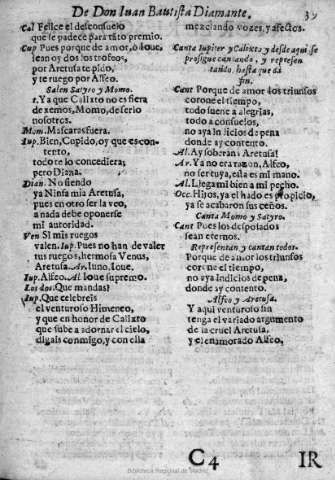 De Don Iuan Bautista Diamante.
39
Cal Felice el desconsuelo
que se padece para tãto premio.
Cup Pues porque de amor, ò Ioue,
sean oy dos los trofeos,
por Aretusa te pido,
y te ruego por Alfeo.
Salen Satyro y Momo.
Ya que Calixto no es fiera
dexemos, Momo, de serlo
nosotros.
Mom. Mascaras fuera.
Iup. Bien, Cupido, oy que es contento,
todo te lo concediera;
pero Diana.
Dian. No siendo
ya Ninfa mia Aretusa,
pues en otro ser la veo,
a nada debe oponerse
mi autoridad.
Ven Si mis ruegos
valen. Iup. Pues no han de valer
tus ruegos, hermosa Venus,
Aretusa. Ar. Iuno, Ioue.
Iup. Alfeo. Al. Ioue supremo.
Los dos. Que mandas?
Iup. Que celebreis
el venturoso Himeneo,
y que en honor de Calixto
que sube a adornar el cielo,
digais conmigo, y con ella
mezclando vozes, y afectos.
Canta Iupiter y Calixto, y desde aqui se
prosigue cantando, y representando, hasta que dà
fin.
Cant Porque de amor los triunfos
corone el tiempo,
todo suene a alegrias,
todo a consuelos,
no aya indicios de pena
donde ay contento.
Al. Ay soberana Aretusa!
Ar. Ya no era razon, Alfeo,
no ser tuya, esta es mi mano.
Al. Llega mi bien a mi pecho.
Occ. Hijos, ya el hado es propicio,
ya se acabaron sus ceños.
Canta Momo y Satyro.
Cant Pues los despojados
sean eternos.
Representan y cantan todos.
Porque de amor los triunfos
corone el tiempo,
no aya indicios de pena,
donde ay contento.
Alfeo y Aretusa.
Y aqui venturoso fin
tenga el variado argumento
de la cruel Aretusa,
y el enamorado Alfeo,
C4
IR
Biblioteca Regional de Madrid